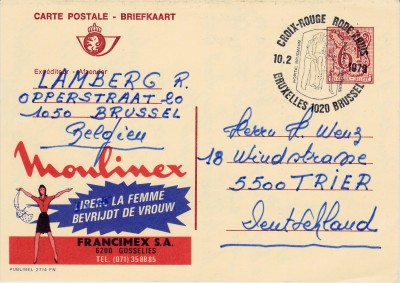 CARTE POSTALE - BRIEFKAART
Expéditeur - Afzender
LAMBERG R.
OPPERSTRAAT 20
1050 BRUSSEL
Belgien
CROIX-ROUGE RODE KRUIS
10.2 1979
BRUXELLES 1020 BRUSSEL
Herrn H. Wenz
18 Windstrasse
5500 TRIER
Deutschland
Moulinex
LIBÈRE LA FEMME
BEVRIJDT DE VROUW
FRANCIMEX S.A.
6200 GOSSELIES
TEL. (071) 358885
PUBLIBEL 2714 FN